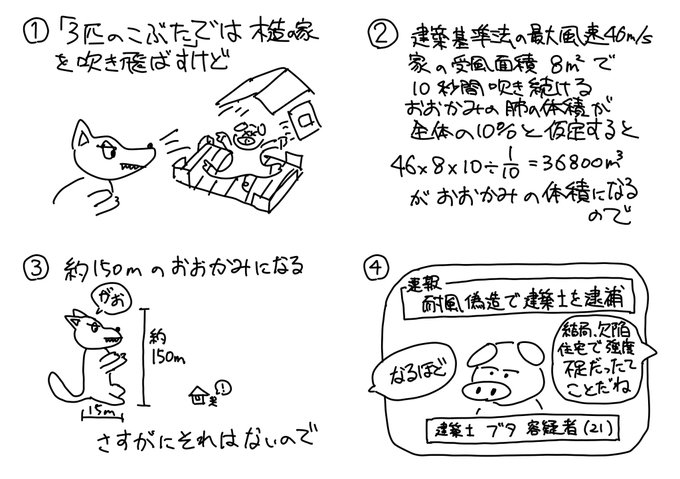 ①「3匹のこぶた」では 木造の家
を吹き飛ばすけど
② 建築基準法の最大風速46m/s
家の受風面積 8m²で
10秒間吹き続ける
おおかみの肺の体積が
全体の10%と仮定すると
46×8×10÷1/10=36800m³
がおおかみの体積になる
ので
③ 約150mのおおかみになる
がお
約
150m
!
15m
さすがにそれはないので
④
速報
耐風偽造で建築士を逮捕
結局、欠陥
住宅で強度
不足だったて
ことだね
なるほど
建築士 ブタ 容疑者(21)